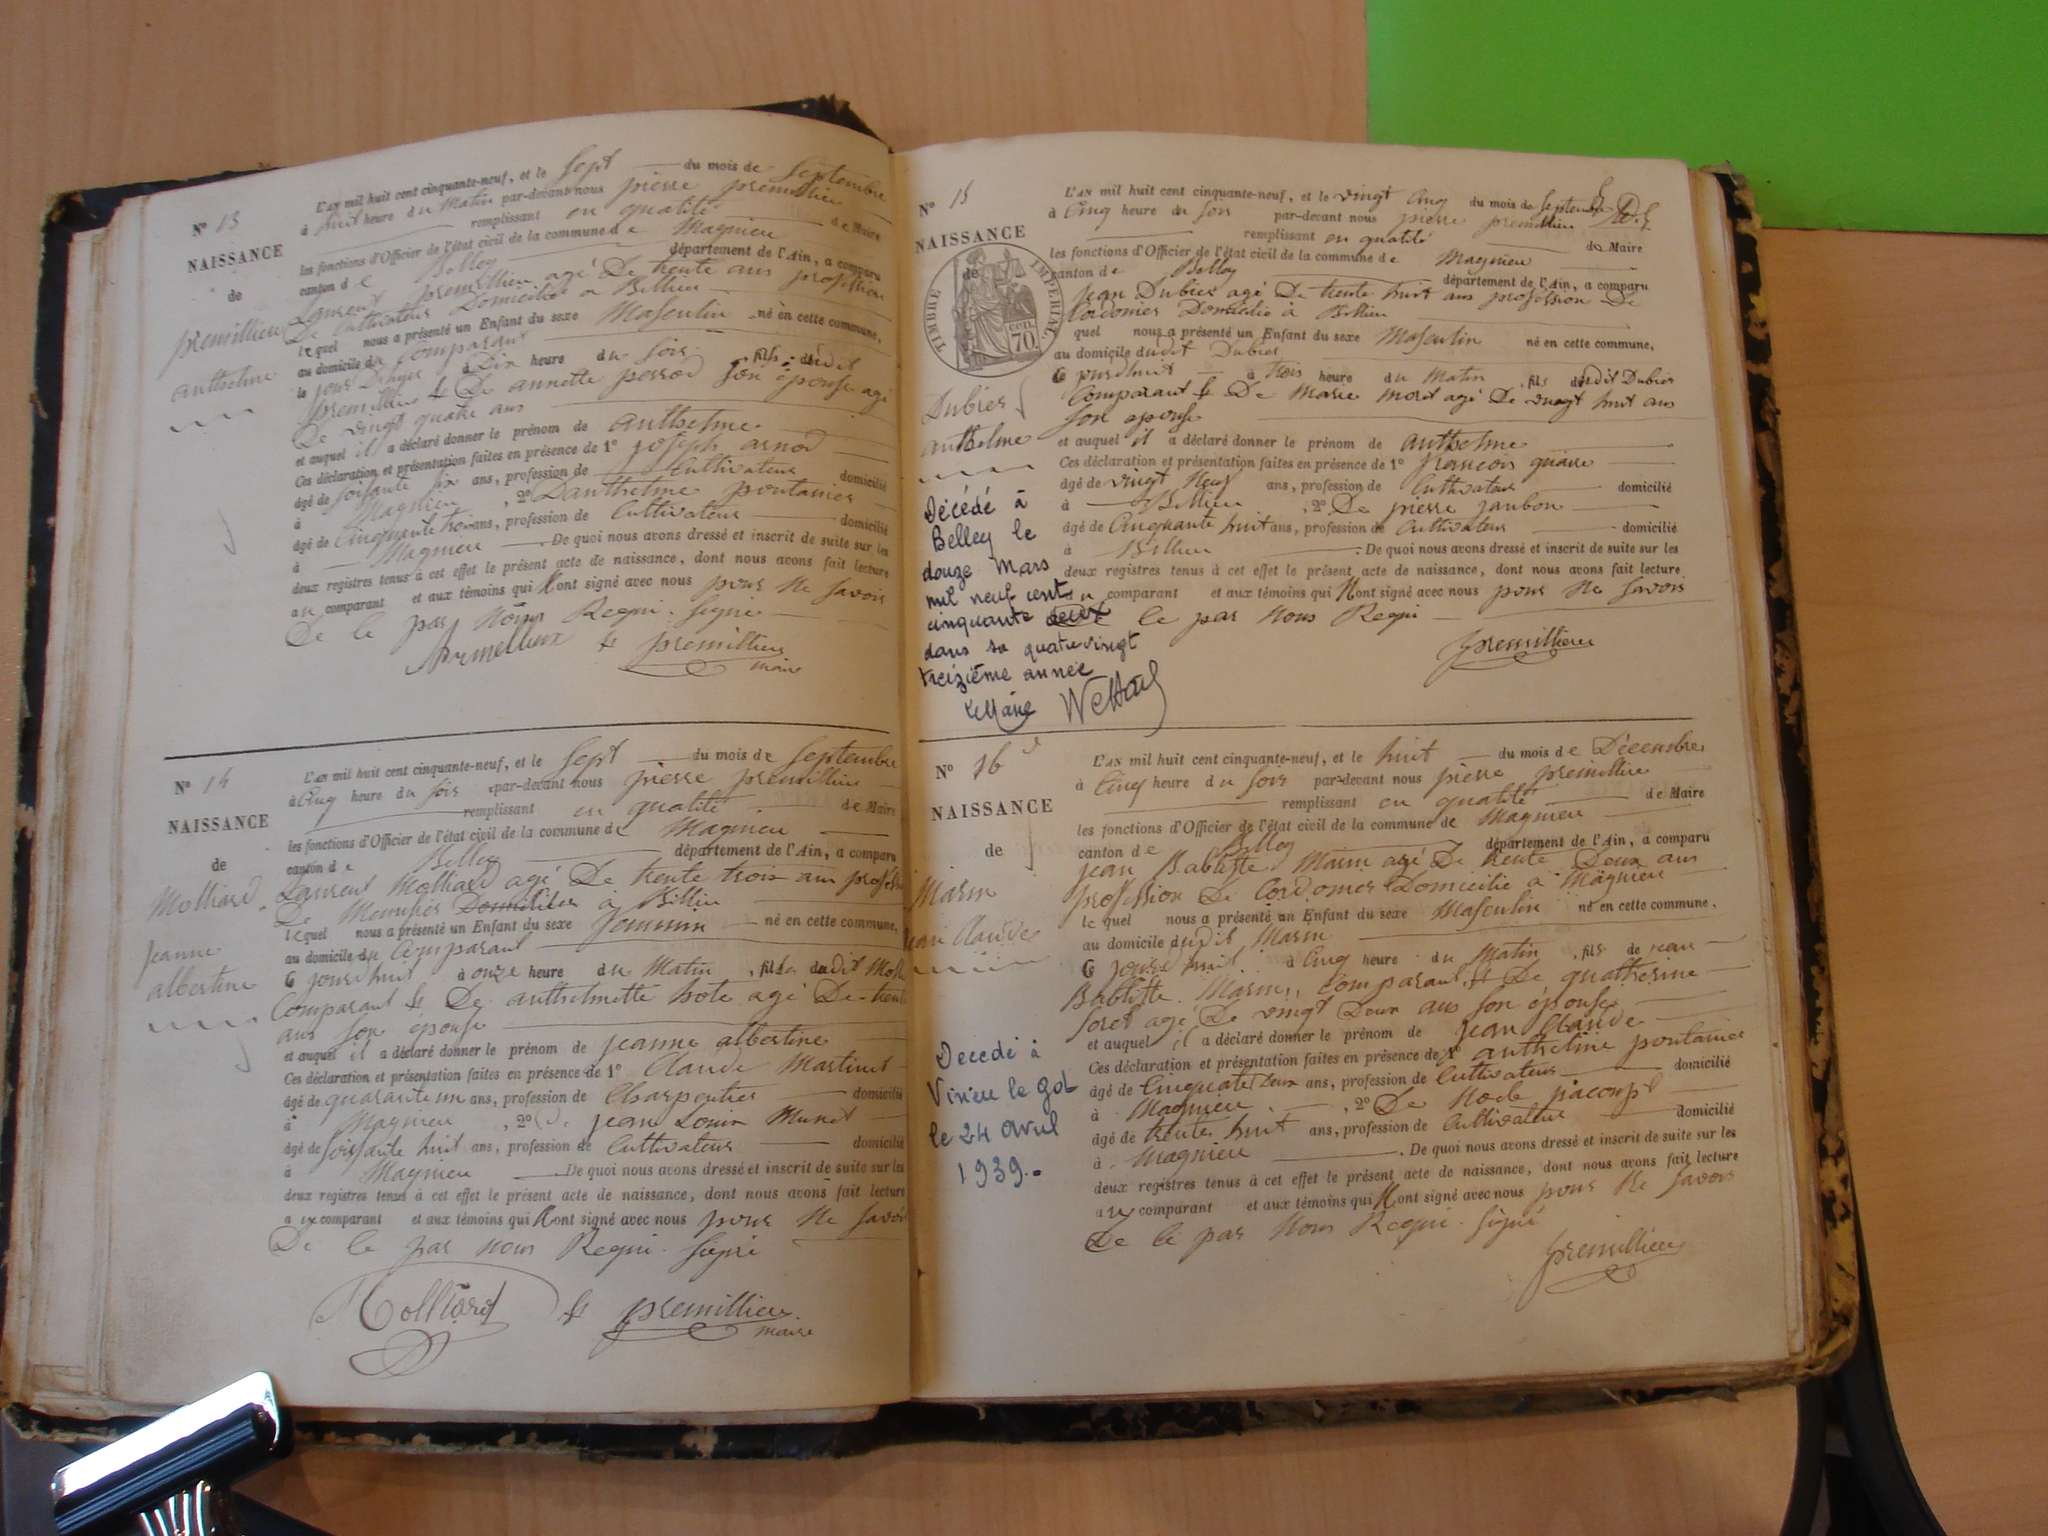 N° 13
NAISSANCE
de
premillieu
anthelme
L'AN mil huit cent cinquante-neuf, et le sept du mois de septembre
à huit heure du Matin par-devant nous pierre premillieu
remplissant en qualité de Maire
les fonctions d'Officier de l'état civil de la commune de Magnieu
canton de Belley département de l'Ain, a comparu
Laurent premillieu agé De trente ans profession
De Cultivateur Domicilié a Billieu
lequel nous a présenté un Enfant du sexe Masculin né en cette commune,
au domicile du Comparant
le jour D'hyer à Dix heure du soir fils dudit
premillieu & De annette perrod son épouse agé
De vingt quatre ans
et auquel il a déclaré donner le prénom de anthelme
Ces déclaration et présentation faites en présence de 1° joseph arnod
âgé de soisante six ans, profession de Cultivateur domicilié
à Magnieu , 2° D'anthelme pontanier
âgé de Cinquante trois ans, profession de Cultivateur domicilié
à Magnieu De quoi nous avons dressé et inscrit de suite sur les
deux registres tenus à cet effet le présent acte de naissance, dont nous avons fait lecture
au comparant et aux témoins qui n'ont signé avec nous pour ne savoir
De le par Nous Requi. signé
& premillieu
maire
N° 14
NAISSANCE
de
Molliard
jeanne
albertine
L'AN mil huit cent cinquante-neuf, et le sept du mois de septembre
à Cinq heure du soir par-devant nous pierre premillieu
remplissant en qualité de Maire
les fonctions d'Officier de l'état civil de la commune de Magnieu
canton de Belley département de l'Ain, a comparu
Laurent Molliard agé De trente trois ans profession
De Menusier Domicilier à Billieu
lequel nous a présenté un Enfant du sexe feminin né en cette commune,
au domicile du Comparant
Ce jourd'huit à onze heure du Matin , fille dudit Moll
Comparant & De anthelmette hote agé De trente
ans son épouse
et auquel il a déclaré donner le prénom de jeanne albertine
Ces déclaration et présentation faites en présence de 1° Claude Martinet
âgé de quarante un ans, profession de Charpentier domicilié
à Magnieu , 2° De jean Louis Munet
âgé de soissante huit ans, profession de Cultivateur domicilié
à Magnieu De quoi nous avons dressé et inscrit de suite sur les
deux registres tenus à cet effet le présent acte de naissance, dont nous avons fait lecture
au comparant et aux témoins qui n'ont signé avec nous pour Ne savoir
De le par nous Requi. signé
Molliard & premillieu
maire
N° 15
NAISSANCE
de
TIMBRE IMPÉRIAL
70 CEN.
Dubier
anthelme
Décédé à
Belley le
douze Mars
mil neuf cent
cinquante deux
dans sa quatre vingt
treizième année
Le Maire
L'AN mil huit cent cinquante-neuf, et le vingt Cinq du mois de septembre
à Cinq heure du soir par-devant nous pierre premillieu
remplissant en qualité de Maire
les fonctions d'Officier de l'état civil de la commune de Magnieu
canton de Belley département de l'Ain, a comparu
jean Dubier agé De trente huit ans profession De
Cordonier Domicilié à Billieu
quel nous a présenté un Enfant du sexe Masculin né en cette commune,
au domicile dudit Dubier
Ce jourd'huit à trois heure du Matin , fils dudit Dubier
Comparant & De Marie Moret agé De vingt huit ans
son épouse
et auquel il a déclaré donner le prénom de anthelme
Ces déclaration et présentation faites en présence de 1° françois
âgé de vingt Neuf ans, profession de Cultivateur domicilié
à Billieu , 2° De pierre janbon
âgé de Cinquante huit ans, profession de Cultivateur domicilié
à Billieu De quoi nous avons dressé et inscrit de suite sur les
deux registres tenus à cet effet le présent acte de naissance, dont nous avons fait lecture
au comparant et aux témoins qui n'ont signé avec nous pour Ne savoir
le par Nous Requi
premillieu
N° 16
NAISSANCE
de
Marin
jean Claude
Décédé à
Virieu le Gd
le 24 avril
1939.
L'AN mil huit cent cinquante-neuf, et le huit du mois de Décembre
à Cinq heure du soir par-devant nous pierre premillieu
remplissant en qualité de Maire
les fonctions d'Officier de l'état civil de la commune de Magnieu
canton de Belley département de l'Ain, a comparu
jean Babtiste Marin agé De trente Deux ans
profession De Cordonier Domicilié a Magnieu
lequel nous a présenté un Enfant du sexe Masculin né en cette commune.
au domicile dudit Marin
Ce jourd'huit à Cinq heure du Matin , fils de jean
Babtiste Marin, Comparant & De quatherine
foret agé De vingt Deux ans son épouse
et auquel il a déclaré donner le prénom de jean Claude
Ces déclaration et présentation faites en présence de 1° anthelme pontanier
âgé de Cinquate Deux ans, profession de Cultivateur domicilié
à Magnieu , 2° De
âgé de trente huit ans, profession de Cultivateur domicilié
à Magnieu . De quoi nous avons dressé et inscrit de suite sur les
deux registres tenus à cet effet le présent acte de naissance, dont nous avons fait lecture
au comparant et aux témoins qui n'ont signé avec nous pour Ne savoir
De le par Nous Requi. signé
premillieu